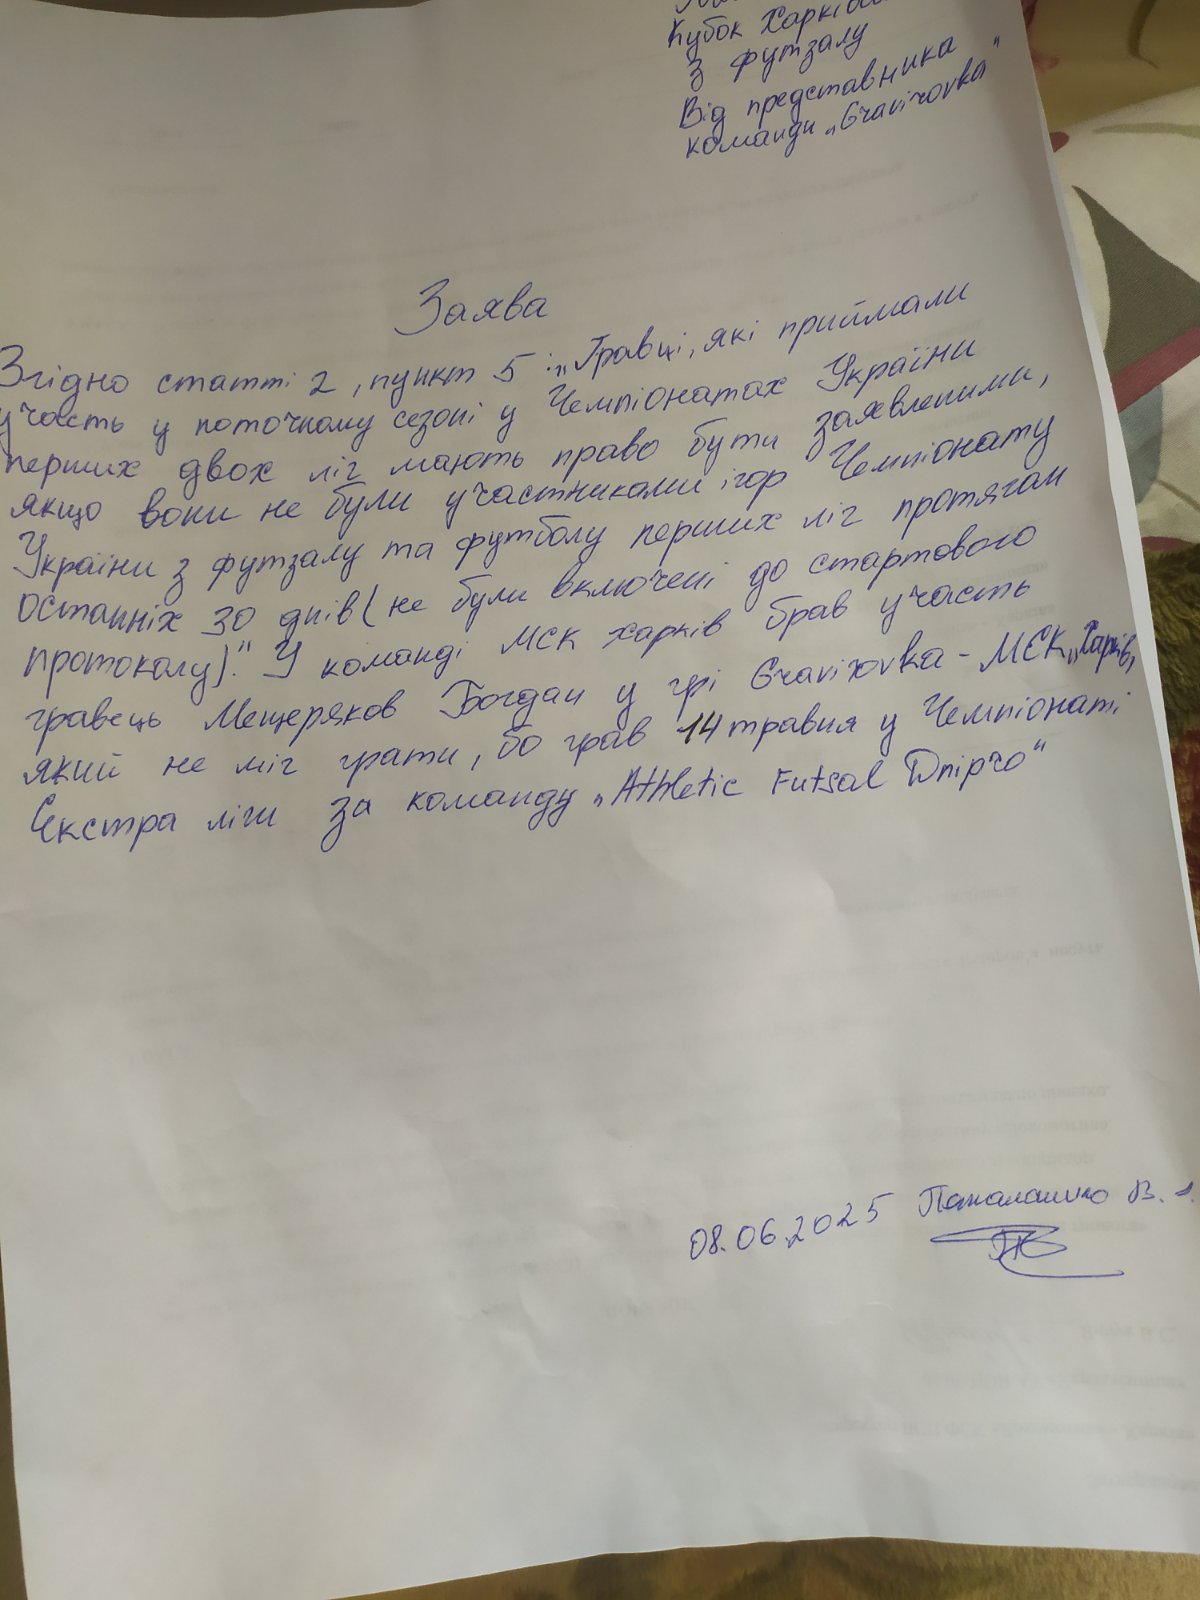 Кубок Харківс
з футзалу
Від представника
команди „Gravirovka"
Заява
Згідно статті 2, пункт 5 : „Гравці, які приймали
участь у поточному сезоні у Чемпіонатах України
перших двох ліг мають право бути заявленими,
якщо вони не були участниками ігор Чемпіонату
України з футзалу та футболу перших ліг протягом
останніх 30 днів (не були включені до стартового
протоколу)." У команді МСК Харків брав участь
гравець Мещеряков Богдан у грі Gravirovka - МСК „Харків,
який не міг грати, бо грав 14 травня у Чемпіонаті
Екстра ліги за команду „Athletic Futsal Dnipro"
08.06.2025 В.